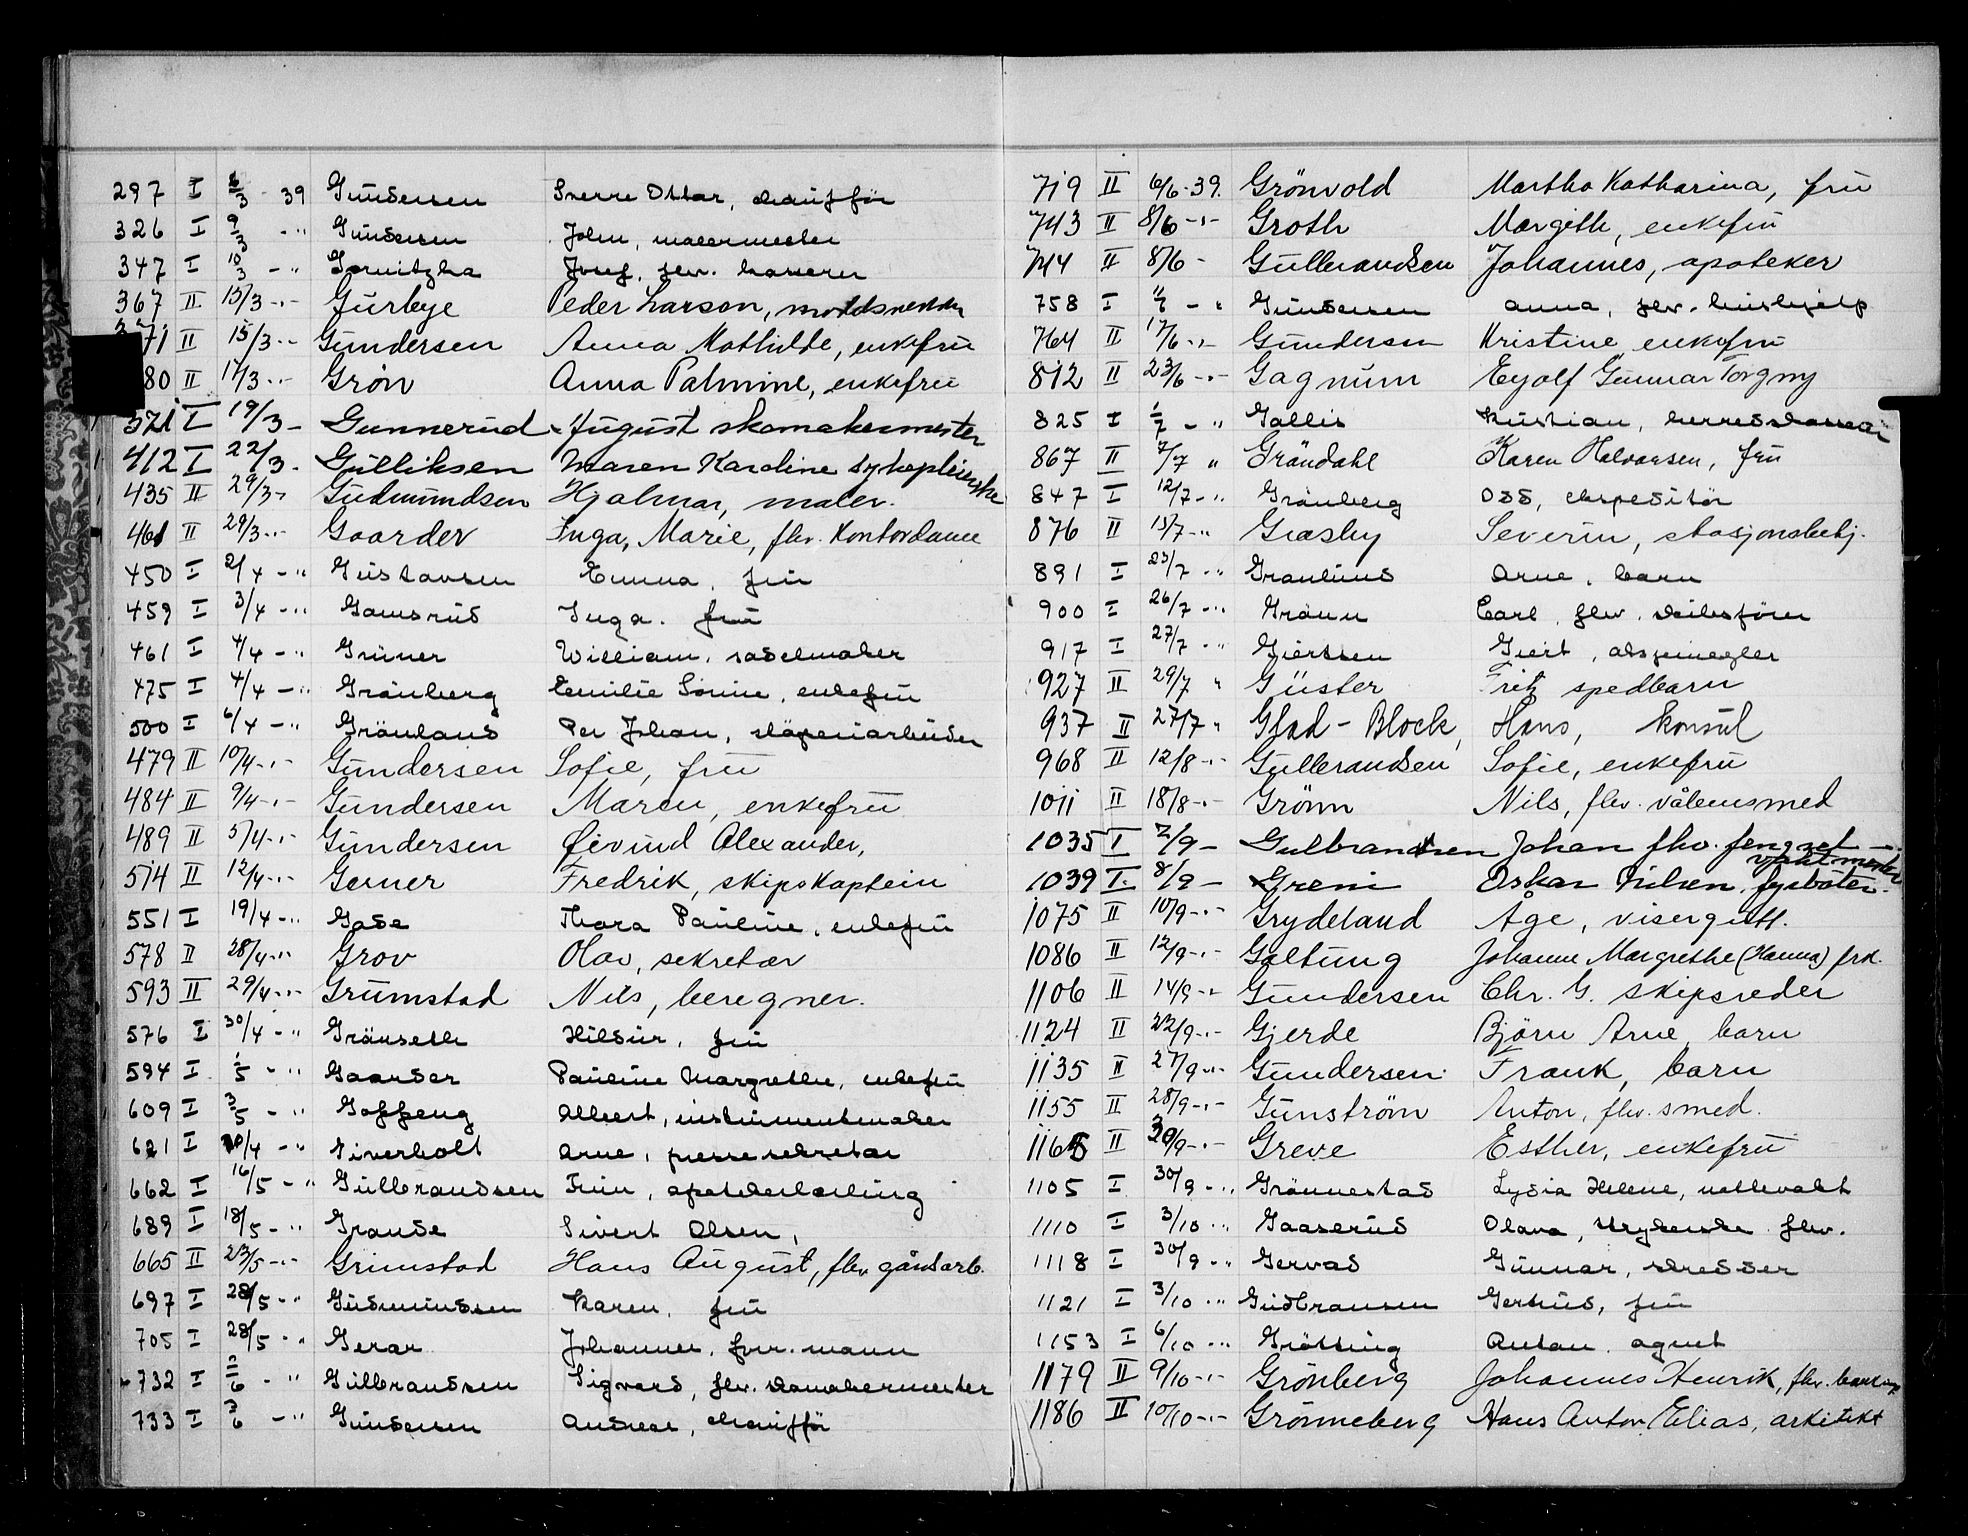 297 I 6/3 - 39 Gundersen Sverre Ottar, chaufför
326 I 9/3 -" Gundersen John, malermester
347 I 10/3 -" Josef, flv. kasserer
367 II 15/3 -"- Gurbye Peder Larson,
371 II 15/3 -"- Gundersen Anna Mathilde, enkefru
80 II 17/3 -"- Grön Anna Palmine, enkefru
321 I 19/3 - Gunnerud August skomakermester
412 I 22/3 - Gulliksen Maren Karoline sykepleierske
435 II 29/3 - Gudmundsen Hjalmar, maler.
461 II 29/3 -"- Gaarder Inga, Marie, flv. Kontordame
450 I 2/4 -" Gustavsen Emma, fru
459 I 3/4 -" Gamsrud Inga. fru
461 I 4/4 -" Grüner William, sadelmaker
475 I 4/4 -" Grönberg Emilie Sörine, enkefru
500 I 6/4 -" Grönland Per Johan, sláperiarbeider
479 II 10/4 -"- Gundersen Sofie, fru
484 II 9/4 -"- Gundersen Maren, enkefru
489 II 5/4 -"- Gundersen Øivind Alexander,
514 II 12/4 -"- Gerner Fredrik, skipskaptein
551 I 19/4 -" Gade Thora Pauline, enkefru
578 II 28/4 -"- Grov Olav, sekretær
593 II 29/4 -"- Grumstad Nils, beregner.
576 I 30/4 -" Grönseth Hildur, fru
594 I 1/5 -" Gaarder Pauline Margrethe, enkefru
609 I 3/5 -" Goffeng Albert, instrumentmaker
621 I /4 -" Giverholt Arne, pressesekretær
662 I 16/5 -" Gulbrandsen Finn, apotekerlærling
689 I 18/5 -" Grande Sivert Olsen,
665 II 23/5 -"- Grimstad Hans August, flv. gårdsarb.
697 I 28/5 -" Gudmundsen Karen, fru
705 I 28/5 -" Gerar Johannes, forr.mann
732 I 2/6 -" Gulbrandsen Sigvard, flv. skomakermester
733 I 3/6 -" Gundersen Andreas, chaufför
719 II 6/6-39. Grönvold Martha Katharina, fru
743 II 8/6 -"- Groth Margith, enkefru
744 II 8/6 - Gulbrandsen Johannes, apoteker
758 I -" Gundersen Anna, flv. hushjelp
764 II 17/6 -"- Gundersen Kristine enkefru
812 II 23/6 -"- Gagnum Eyolf Gunnar Torgny
825 I 1/7 -" Gallis Kristian, herredskasserer
867 II 7/7 " Gröndahl Karen Halvorsen, fru
847 I 12/7 -" Grönberg Odd, ekspeditör
876 II 15/7 -" Græsby Severin, stasjonsbetj.
891 I 23/7 -" Granlund Arne, barn
900 I 26/7 -" Grönn Carl, flv. skibsförer
917 I 27/7 -" Giertsen Giert, aksjemegler
927 II 29/7 " Güster Fritz spedbarn
937 II 27/7 " Glad-Block, Hans, konsul
968 II 12/8 -"- Gulbrandsen Sofie, enkefru
1011 II 18/8 -"- Grönn Nils, flv. våbensmed
1035 I 2/9 - Gulbrandsen Johan fhv. fengsel-vaktmester
1039 I. 8/9 - Greni Oskar Nilsen, fyrbøter.
1075 II 10/9 -"- Grydeland Åge, visergutt.
1086 II 12/9 -"- Galtung Johanne Margrethe (Hanna) frk.
1106 II 14/9 -"- Gundersen Chr. G. skipsreder
1124 II 22/9 -"- Gjerde Björn Arne, barn
1135 II 27/9 -"- Gundersen Frank, barn
1155 II 28/9 -"- Gunström Anton, flv. smed.
1165 II 30/9 -"- Greve Esther, enkefru
1105 I 30/9 -" Grönnestad Lydia Helene, nattevakt
1110 I 3/10 -" Gaaserud Olava, strykerske flv.
1118 I 30/9 -" Gervad Gunnar, skredder
1121 I 3/10 -" Gudbransen Gertrud, fru
1153 I 6/10 -" Grötting Anton, agent
1179 II 9/10 -"- Grönberg Johannes Henrik, flv.
1186 II 10/10 -"- Grönneberg Hans Anton Elias, arkitekt